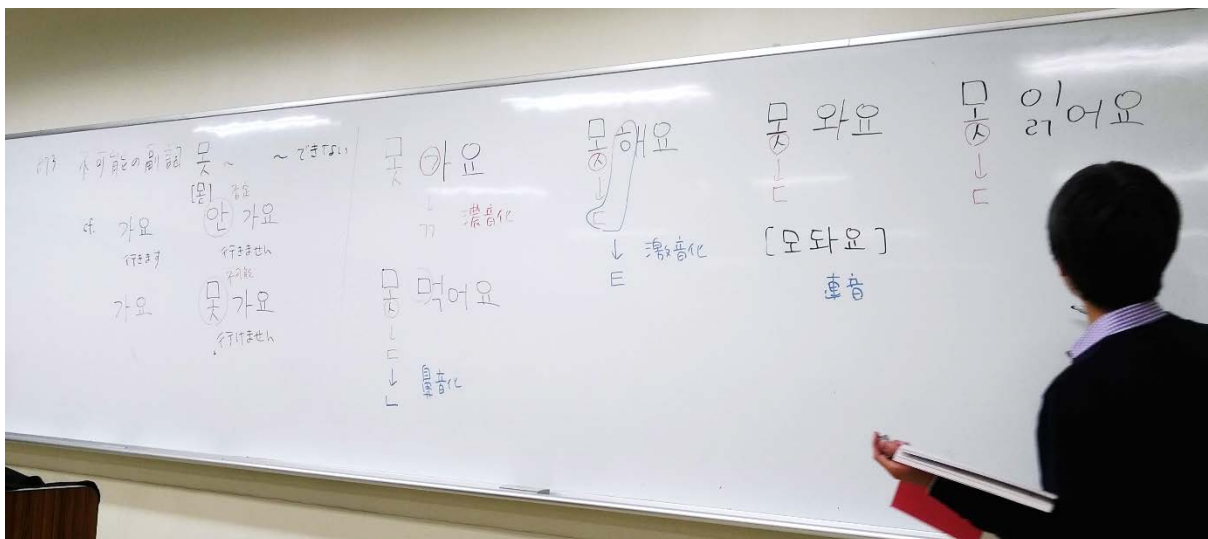 不可能の副詞 못~ ~できない
[몯] 否定
cf. 가요 안 가요
行きます 行きません
不可能
가요 못 가요
行けません
못 가요
↓
ㄲ 濃音化
못 먹어요
↓
ㄷ
↓
ㄴ 鼻音化
못 해요
↓
ㄷ
↓ 激音化
ㅌ
못 와요
↓
ㄷ
[모 돠요]
連音
못 읽어요
↓
ㄷ